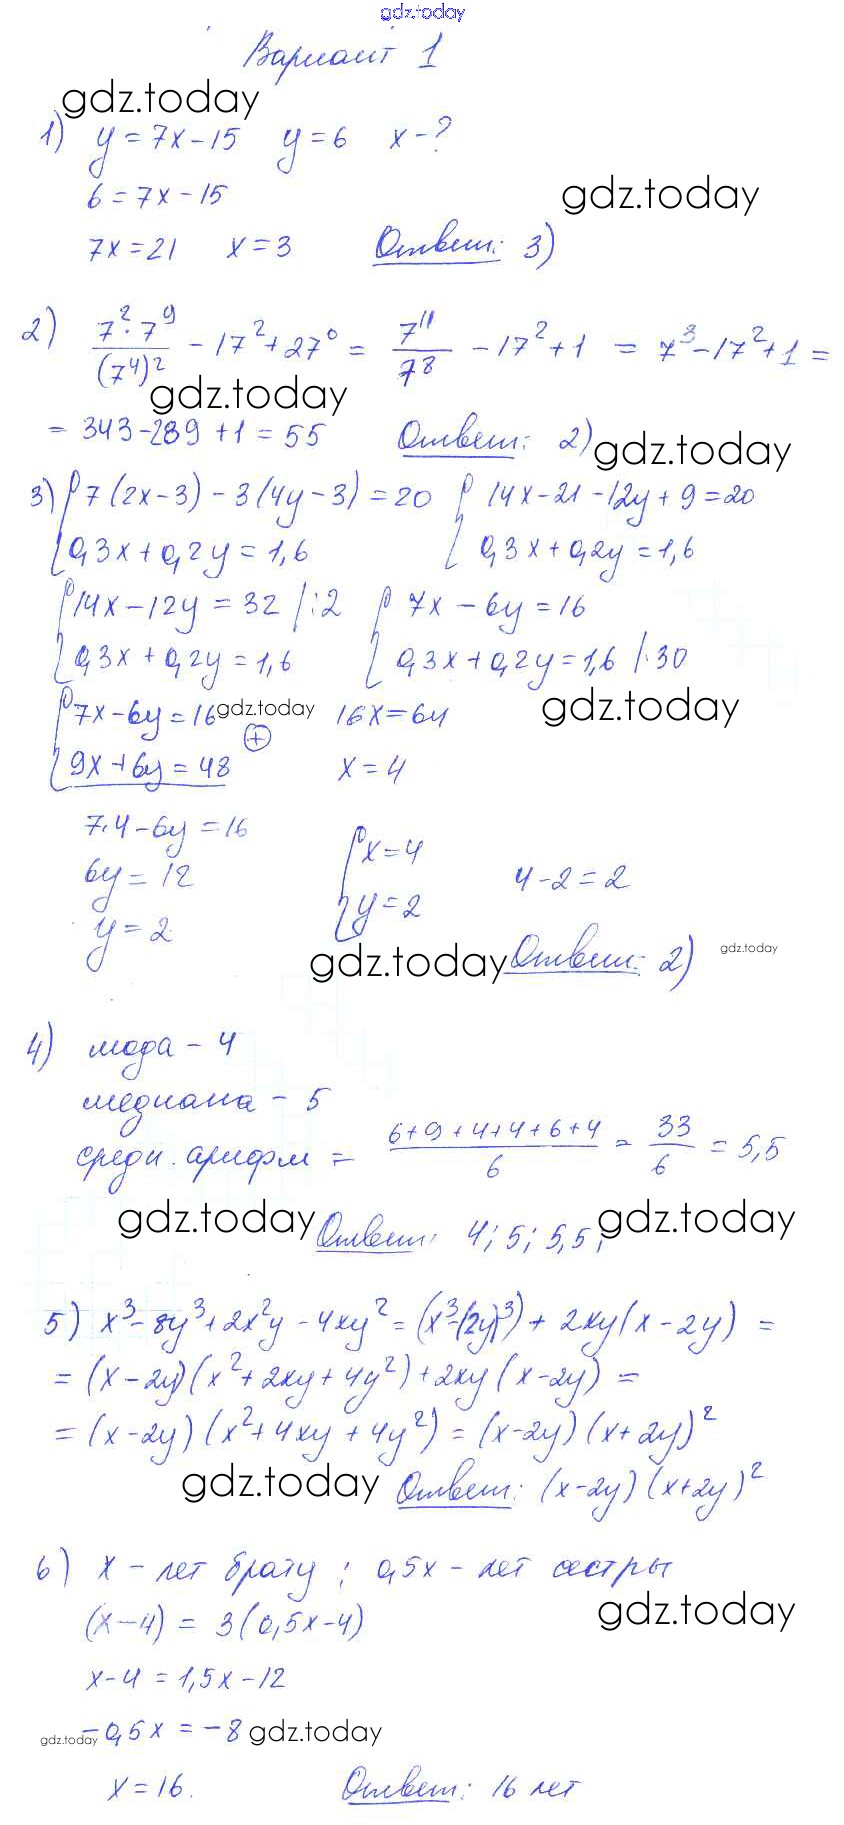 gdz.today
Вариант 1
gdz.today
1) y = 7x - 15 y = 6 x - ?
6 = 7x - 15 gdz.today
7x = 21 x = 3 Ответ: 3)
2) 7²·7⁹/(7⁴)² - 17² + 27⁰ = 7¹¹/7⁸ - 17² + 1 = 7³ - 17² + 1 =
gdz.today
= 343 - 289 + 1 = 55 Ответ: 2) gdz.today
3) { 7(2x-3) - 3(4y-3) = 20 { 14x - 21 - 12y + 9 = 20
0,3x + 0,2y = 1,6 0,3x + 0,2y = 1,6
{ 14x - 12y = 32 |:2 { 7x - 6y = 16
0,3x + 0,2y = 1,6 0,3x + 0,2y = 1,6 |·30
{ 7x - 6y = 16 gdz.today 16x = 64 gdz.today
9x + 6y = 48 (+) x = 4
7·4 - 6y = 16
6y = 12 { x = 4 4 - 2 = 2
y = 2 y = 2
gdz.today Ответ: 2) gdz.today
4) мода - 4
медиана - 5
средн. арифм = (6+9+4+4+6+4)/6 = 33/6 = 5,5
gdz.today Ответ: 4; 5; 5,5; gdz.today
5) x³ - 8y³ + 2x²y - 4xy² = (x³-(2y)³) + 2xy(x - 2y) =
= (x - 2y)(x² + 2xy + 4y²) + 2xy(x - 2y) =
= (x - 2y)(x² + 4xy + 4y²) = (x - 2y)(x + 2y)²
gdz.today Ответ: (x - 2y)(x + 2y)²
6) x - лет брату; 0,5x - лет сестры
(x - 4) = 3(0,5x - 4) gdz.today
x - 4 = 1,5x - 12
gdz.today -0,5x = -8 gdz.today
x = 16. Ответ: 16 лет